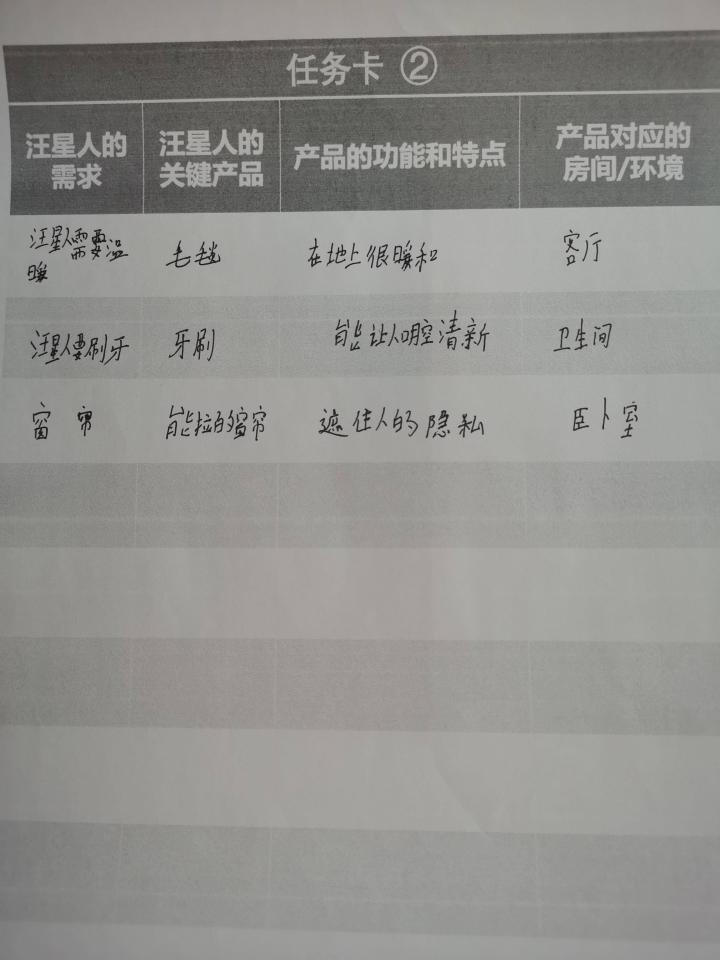 任务卡 ②
汪星人的需求 汪星人的关键产品 产品的功能和特点 产品对应的房间/环境
汪星人需要温暖 毛毯 在地上很暖和 客厅
汪星人要刷牙 牙刷 能让人口腔清新 卫生间
窗帘 能拉的窗帘 遮住人的隐私 卧室